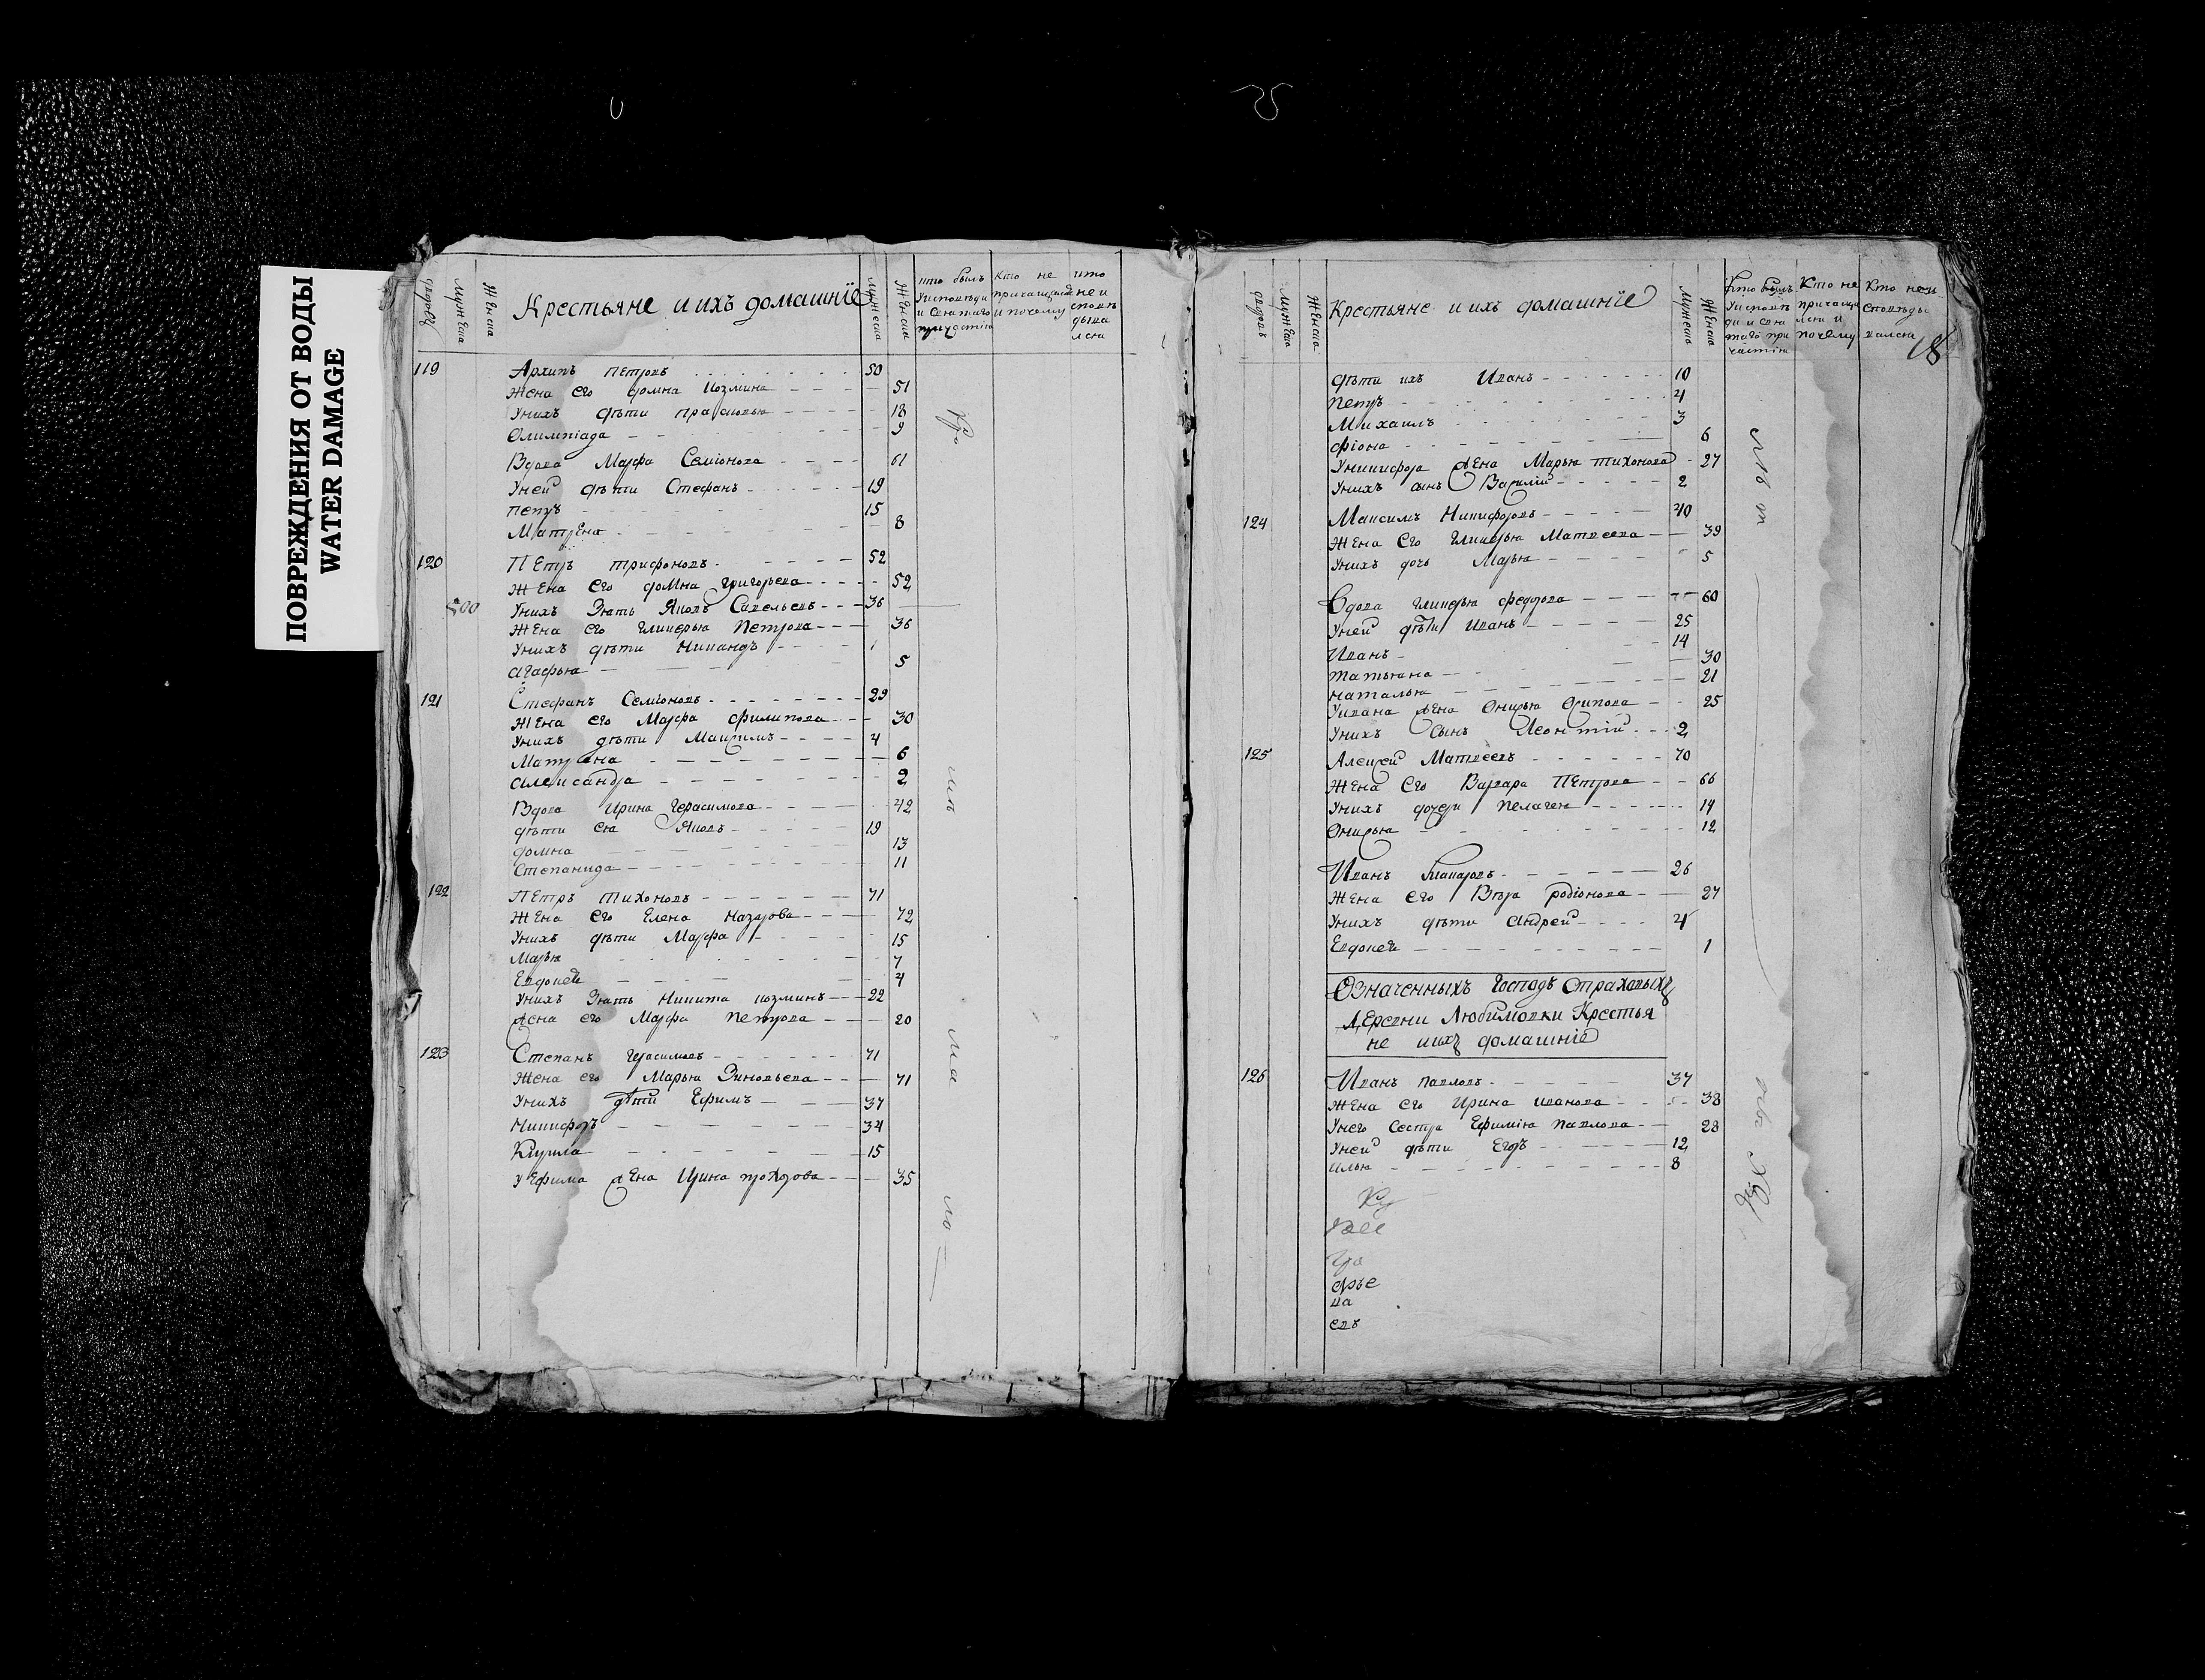 ПОВРЕЖДЕНИЯ ОТ ВОДЫ
WATER DAMAGE
дворовъ
Мужеска
Женска
Крестьяне и ихъ домашніе
Мужеска
Женска
кто былъ
у исповѣди
и святаго
причастія
кто не
причащался
и почему
кто
не и
сповѣ
дыва
лся
119 Архипъ Петровъ 50
Жена его Домна Козмина 51
У нихъ дѣти Прасковья 18
Олимпіада 9
Вдова Марфа Семіонова 61
У ней дѣти Стефанъ 19
Петръ 15
Матрена 8
120 Петръ Трифоновъ 52
Жена его Домна Григорьева 52
500 У нихъ Зять Яковъ Савельевъ 36
Жена его Гликерья Петрова 36
У нихъ дѣти Никандъ 1
Агафья 5
121 Стефанъ Семіоновъ 29
Жена его Марфа Филипова 30
У нихъ дѣти Максимъ 4
Матрена 6
Александра 2
Вдова Ирина Герасимова 42
дѣти ея Яковъ 19
Домна 13
Степанида 11
122 Петръ Тихоновъ 71
Жена его Елена Назарова 72
У нихъ дѣти Марфа 15
Марья 7
Евдокея 4
У нихъ Зять Никита Козминъ 22
Жена его Марфа Петрова 20
123 Степанъ Герасимовъ 71
Жена его Марья Зиновьева 71
У нихъ дѣти Ефимъ 37
Никифоръ 34
Кирила 15
У Ефима жена Ирина Прохорова 35
дворовъ
Мужеска
Женска
Крестьяне и ихъ домашніе
Мужеска
Женска
Кто былъ
у исповѣ
ди и свя
таго при
частія
Кто не
причаща
лся и
почему
Кто неи
сповѣды
вался
18
дѣти ихъ Иванъ 10
Петръ 4
Михаилъ 3
Фіона 6
У Никифора жена Марья Тихонова 27
У нихъ сынъ Василій 2
124 Максимъ Никифоровъ 40
Жена его Гликерья Матвеева 39
У нихъ дочь Марья 5
Вдова Гликерья Федорова 60
У ней дѣти Иванъ 25
Иванъ 14
Татьяна 30
Наталья 21
У Ивана жена Онисья Осипова 25
У нихъ сынъ Леонтій 2
125 Алексей Матвеевъ 70
Жена его Варвара Петрова 66
У нихъ дочери Пелагея 14
Онисья 12
Иванъ Макаровъ 26
Жена его Вѣра Родіонова 27
У нихъ дѣти Андрей 4
Евдокея 1
Означенныхъ Господъ Страховыхъ
Деревни Любимовки Крестья
не и ихъ домашніе
126 Иванъ Павловъ 37
Жена его Ирина Иванова 38
У него сестра Ефимія Павлова 28
У ней дѣти Егоръ 12
Илья 8